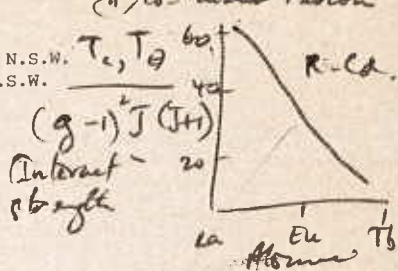 N.S.W.
S.W.
T_c, T_θ
(g-1)² J (J+1)
(Interact
strength
60
40
20
R-Cd.
La
Eu
Tb